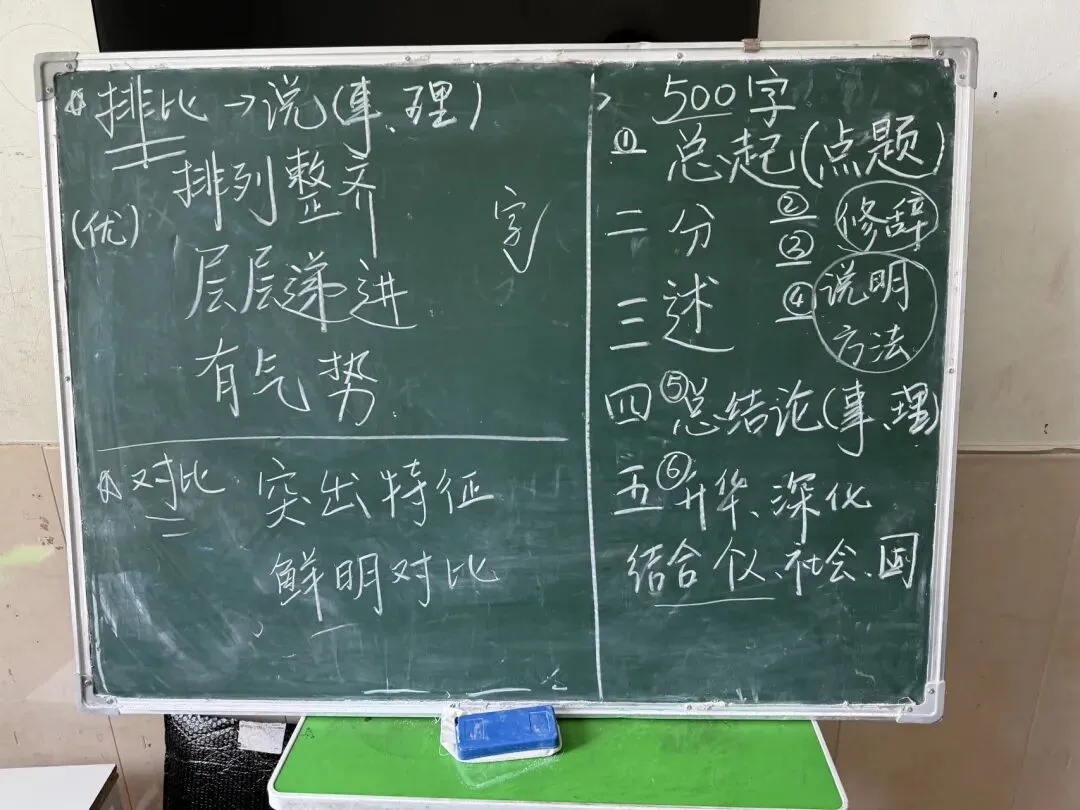 排比→说(事、理)
排列整齐
(优)
层层递进
有气势
字
对比 突出特征
鲜明对比
500字
① 总起(点题)
二 分 ② 修辞
③
三 述 ④ 说明
方法
四 ⑤ 总结论(事、理)
五 ⑥ 升华、深化
结合个人、社会、国